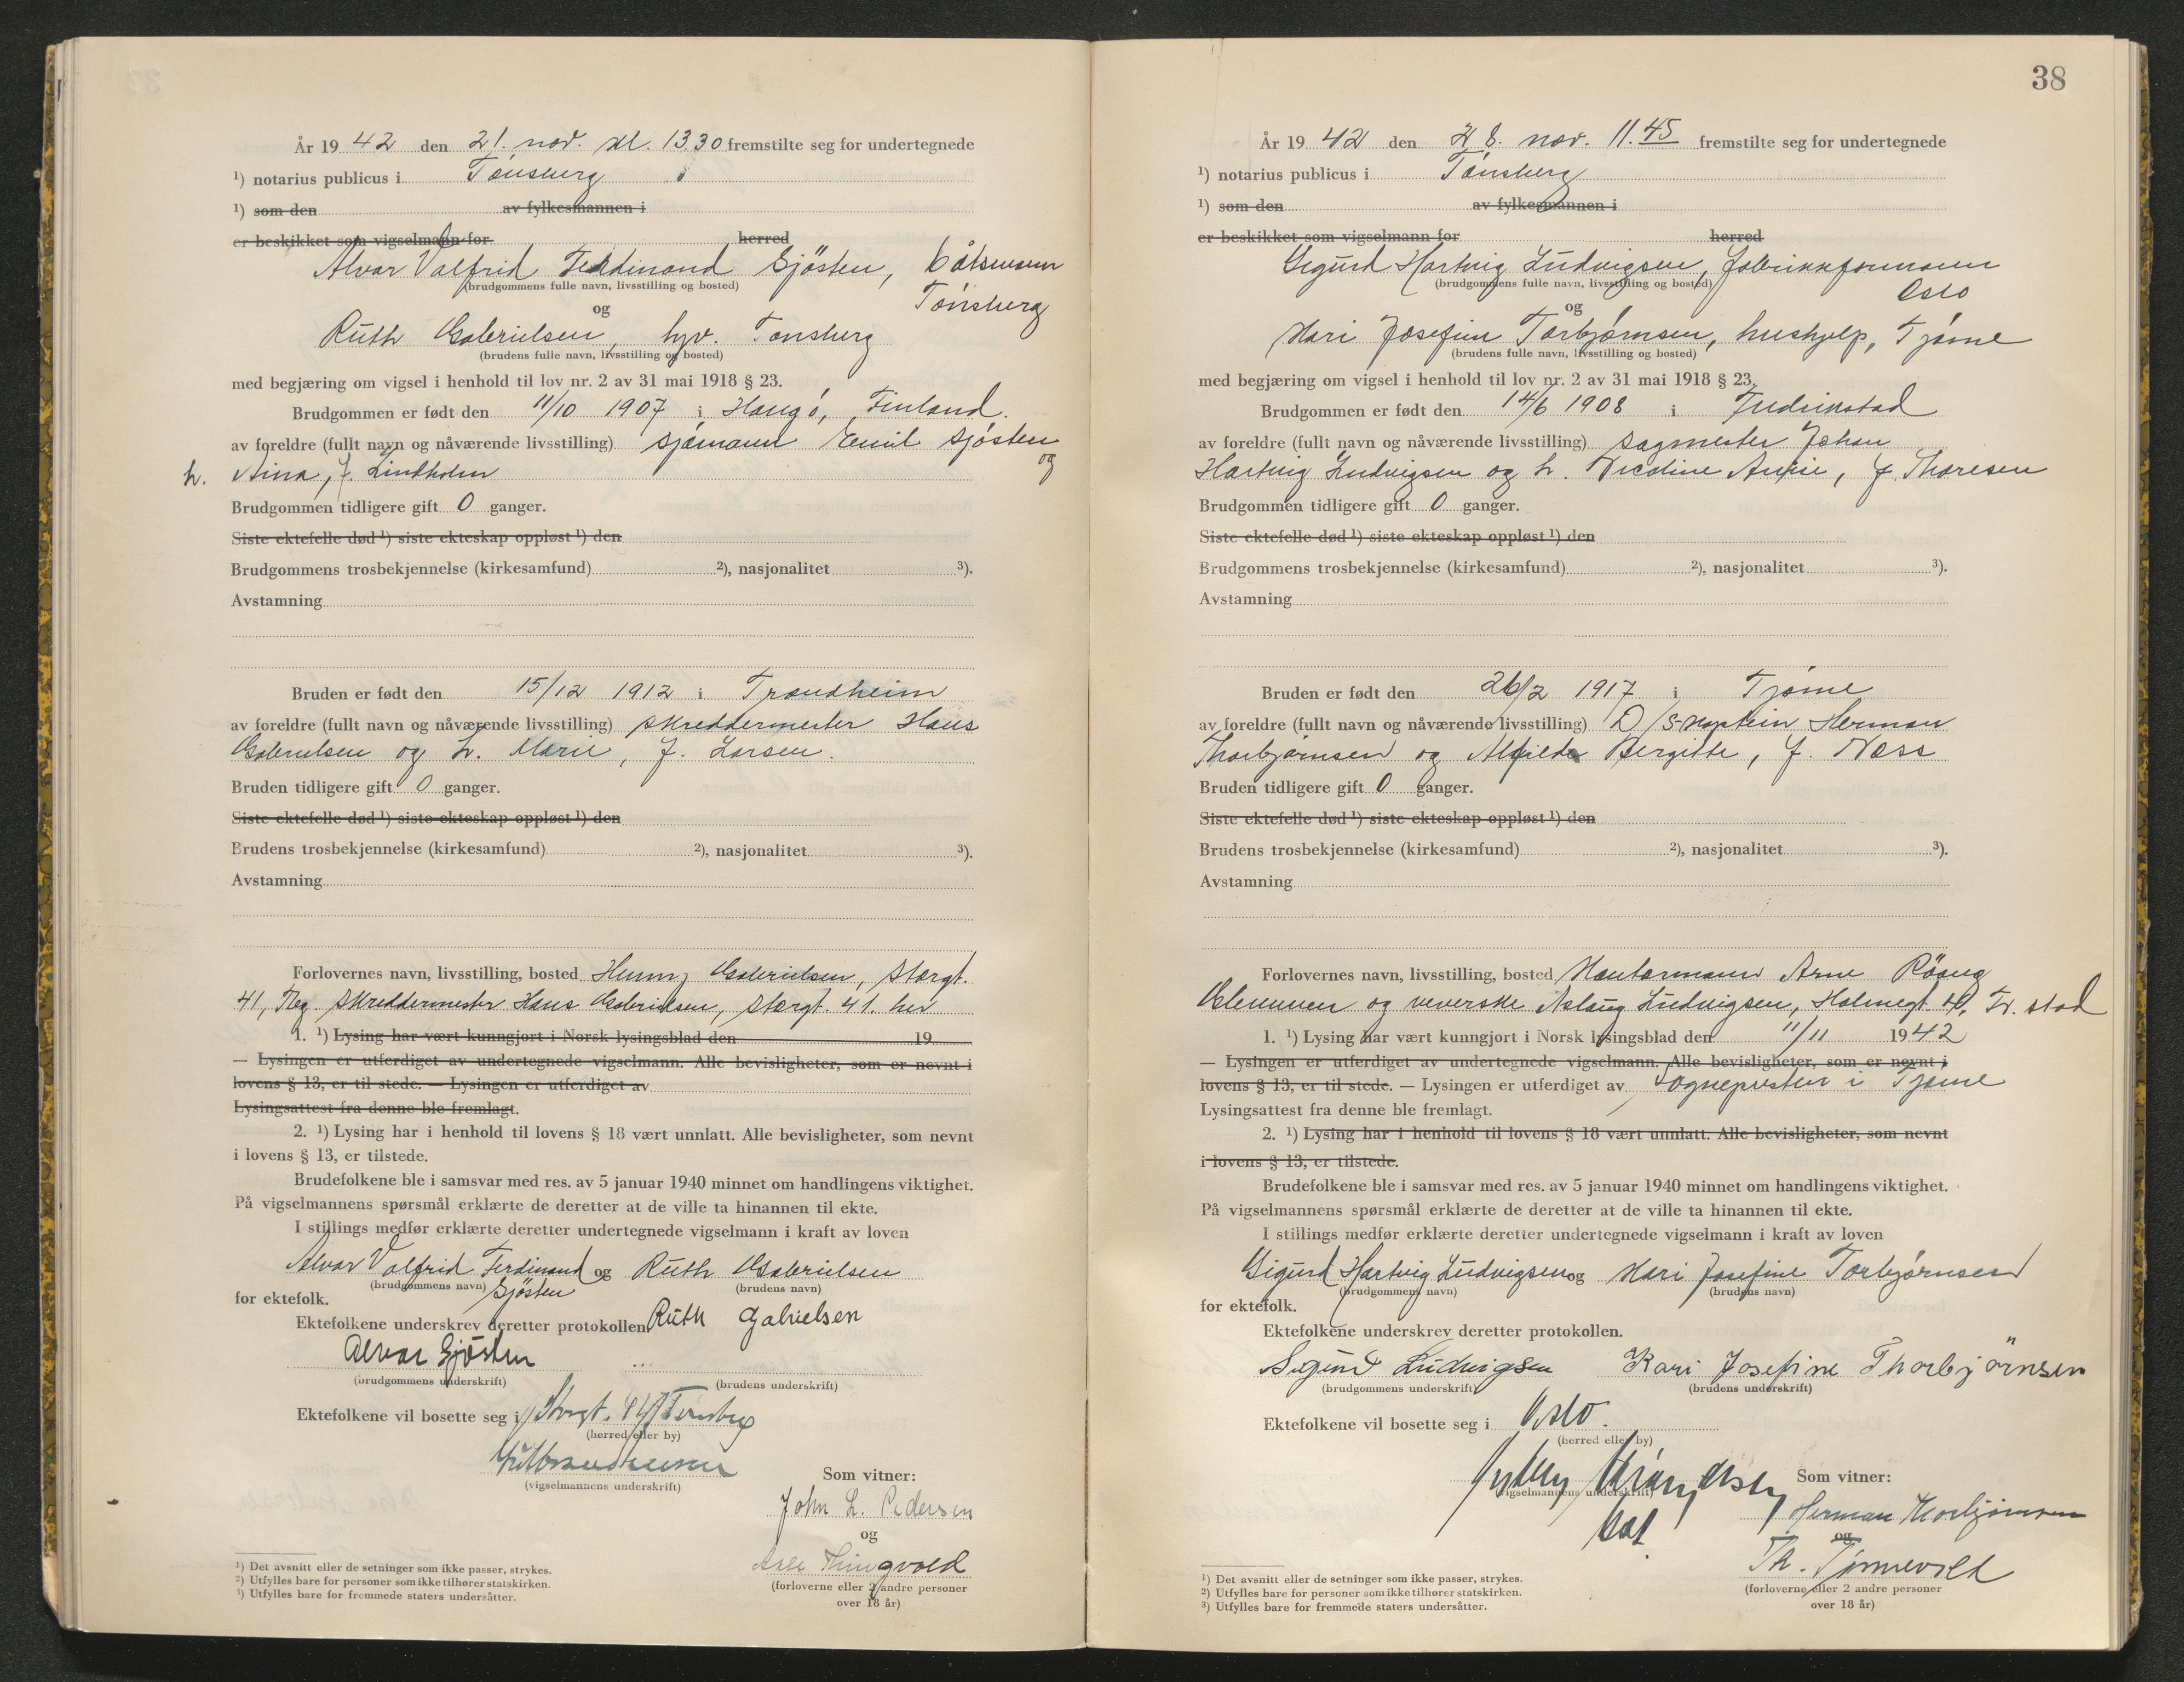 År 1942 den 21. nov. kl. 13.30 fremstilte seg for undertegnede
¹) notarius publicus i Tønsberg
¹) som den av fylkesmannen i
er beskikket som vigselmann for herred
Alvar Valfrid Ferdinand Sjösten, båtsmann
(brudgommens fulle navn, livsstilling og bosted)
Tønsberg
og
Ruth Gabrielsen, hjv. Tønsberg
(brudens fulle navn, livsstilling og bosted)
med begjæring om vigsel i henhold til lov nr. 2 av 31 mai 1918 § 23.
Brudgommen er født den 11/10 1907 i Hangö, Finland.
av foreldre (fullt navn og nåværende livsstilling) sjømann Emil Sjösten
og
h. Aina, f. Lindholm
Brudgommen tidligere gift 0 ganger.
Siste ektefelle død ¹) siste ekteskap oppløst ¹) den
Brudgommens trosbekjennelse (kirkesamfund) ²), nasjonalitet ³).
Avstamning
Bruden er født den 15/12 1912 i Trondheim
av foreldre (fullt navn og nåværende livsstilling) skreddermester Hans
Gabrielsen og h. Marie, f. Larsen.
Bruden tidligere gift 0 ganger.
Siste ektefelle død ¹) siste ekteskap oppløst ¹) den
Brudens trosbekjennelse (kirkesamfund) ²), nasjonalitet ³).
Avstamning
Forlovernes navn, livsstilling, bosted Gabrielsen, Storgt.
41, Tbg. skreddermester Hans Gabrielsen, Storgt. 41. her
1. ¹) Lysing har vært kunngjort i Norsk lysingsblad den 19
— Lysingen er utferdiget av undertegnede vigselmann. Alle bevisligheter, som er nevnt i
lovens § 13, er til stede. — Lysingen er utferdiget av
Lysingsattest fra denne ble fremlagt.
2. ¹) Lysing har i henhold til lovens § 18 vært unnlatt. Alle bevisligheter, som nevnt
i lovens § 13, er tilstede.
Brudefolkene ble i samsvar med res. av 5 januar 1940 minnet om handlingens viktighet.
På vigselmannens spørsmål erklærte de deretter at de ville ta hinannen til ekte.
I stillings medfør erklærte deretter undertegnede vigselmann i kraft av loven
Alvar Valfrid Ferdinand og Ruth Gabrielsen
(brudgommens navn) Sjösten (brudens navn)
for ektefolk.
Ektefolkene underskrev deretter protokollen. Ruth Gabrielsen
Alvar Sjösten
(brudgommens underskrift) (brudens underskrift)
Ektefolkene vil bosette seg i Storgt. 41 Tønsberg
(herred eller by)
(vigselmannens underskrift)
Som vitner:
John L. Pedersen
og
Thingvold
(forloverne eller 2 andre personer
over 18 år)
¹) Det avsnitt eller de setninger som ikke passer, strykes.
²) Utfylles bare for personer som ikke tilhører statskirken.
³) Utfylles bare for fremmede staters undersåtter.
38
År 1942 den 28. nov. 11.45 fremstilte seg for undertegnede
¹) notarius publicus i Tønsberg
¹) som den av fylkesmannen i
er beskikket som vigselmann for herred
Sigurd Hartvig Ludvigsen, fabrikkformann
(brudgommens fulle navn, livsstilling og bosted)
Oslo
og
Kari Josefine Torbjørnsen, hushjelp, Tjøme
(brudens fulle navn, livsstilling og bosted)
med begjæring om vigsel i henhold til lov nr. 2 av 31 mai 1918 § 23.
Brudgommen er født den 14/6 1908 i Fredrikstad
av foreldre (fullt navn og nåværende livsstilling) sagmester Johan
Hartvig Ludvigsen og h. Nicoline Amie, f. Thoresen
Brudgommen tidligere gift 0 ganger.
Siste ektefelle død ¹) siste ekteskap oppløst ¹) den
Brudgommens trosbekjennelse (kirkesamfund) ²), nasjonalitet ³).
Avstamning
Bruden er født den 26/2 1917 i Tjøme
av foreldre (fullt navn og nåværende livsstilling) D/S-kaptein Herman
Thorbjørnsen og Alfilde Bergitte, f. Næss
Bruden tidligere gift 0 ganger.
Siste ektefelle død ¹) siste ekteskap oppløst ¹) den
Brudens trosbekjennelse (kirkesamfund) ²), nasjonalitet ³).
Avstamning
Forlovernes navn, livsstilling, bosted Kontormann Arne Röang
Glemmen og veverske Aslaug Ludvigsen, Holmegt. Fr. stad
1. ¹) Lysing har vært kunngjort i Norsk lysingsblad den 11/11 1942
— Lysingen er utferdiget av undertegnede vigselmann. Alle bevisligheter, som er nevnt i
lovens § 13, er til stede. — Lysingen er utferdiget av Sognepresten i Tjøme
Lysingsattest fra denne ble fremlagt.
2. ¹) Lysing har i henhold til lovens § 18 vært unnlatt. Alle bevisligheter, som nevnt
i lovens § 13, er tilstede.
Brudefolkene ble i samsvar med res. av 5 januar 1940 minnet om handlingens viktighet.
På vigselmannens spørsmål erklærte de deretter at de ville ta hinannen til ekte.
I stillings medfør erklærte deretter undertegnede vigselmann i kraft av loven
Sigurd Hartvig Ludvigsen og Kari Josefine Torbjørnsen
(brudgommens navn) (brudens navn)
for ektefolk.
Ektefolkene underskrev deretter protokollen.
Sigurd Ludvigsen Kari Josefine Thorbjörnsen
(brudgommens underskrift) (brudens underskrift)
Ektefolkene vil bosette seg i Oslo.
(herred eller by)
(vigselmannens underskrift)
Som vitner:
Herman Thorbjørnsen
og
Th. Tønnevold
(forloverne eller 2 andre personer
over 18 år)
¹) Det avsnitt eller de setninger som ikke passer, strykes.
²) Utfylles bare for personer som ikke tilhører statskirken.
³) Utfylles bare for fremmede staters undersåtter.